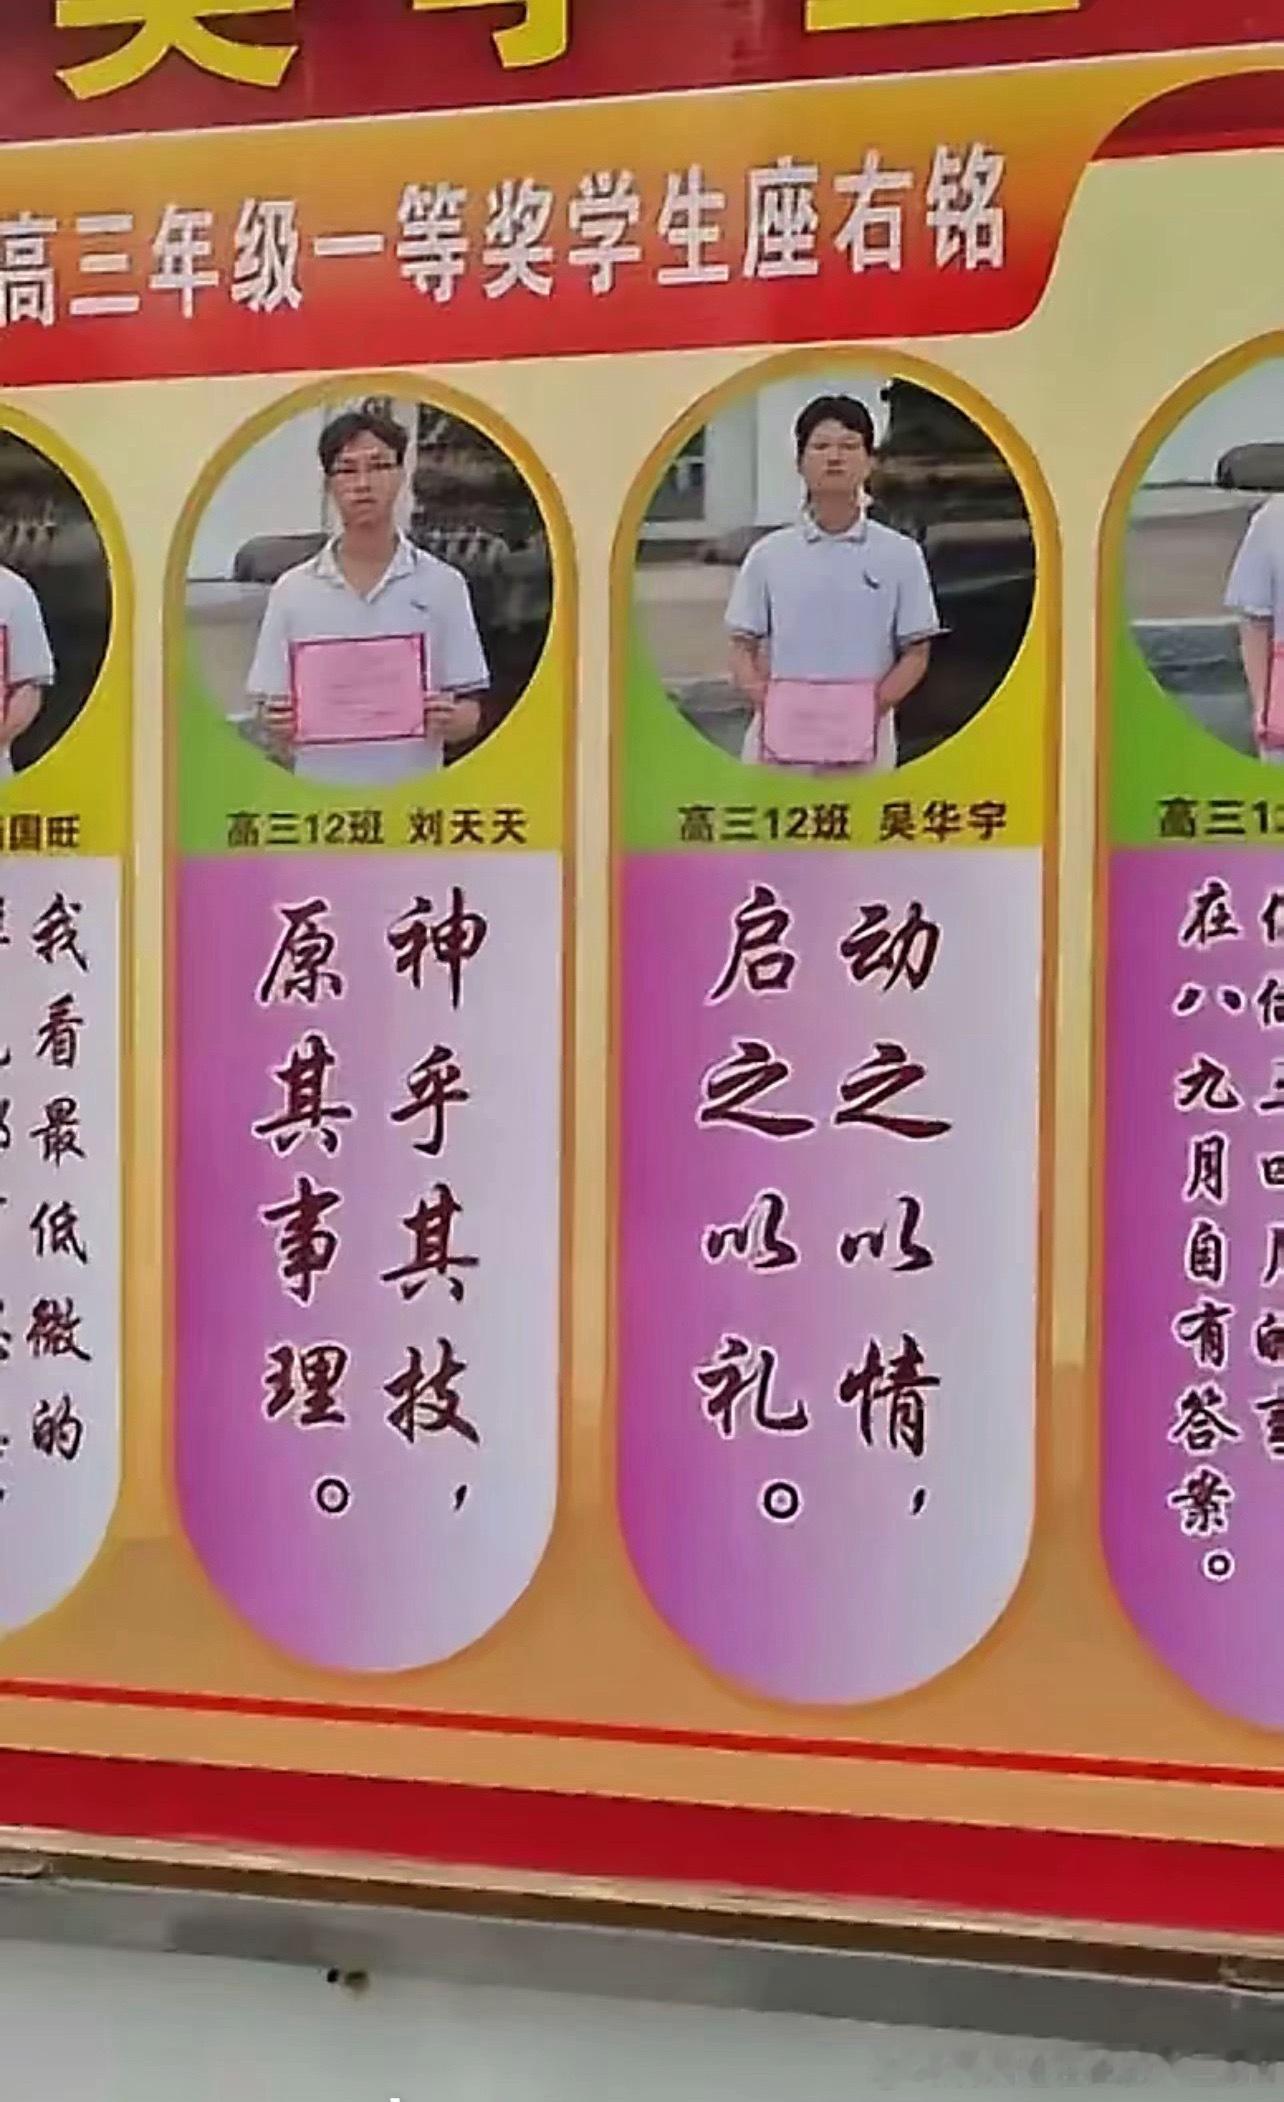 高三年级一等奖学生座右铭
国旺
我看最低微的
高三12班 刘天天
神乎其技，
原其事理。
高三12班 吴华宇
动之以情，
启之以礼。
高三12
在八九月自有答案。